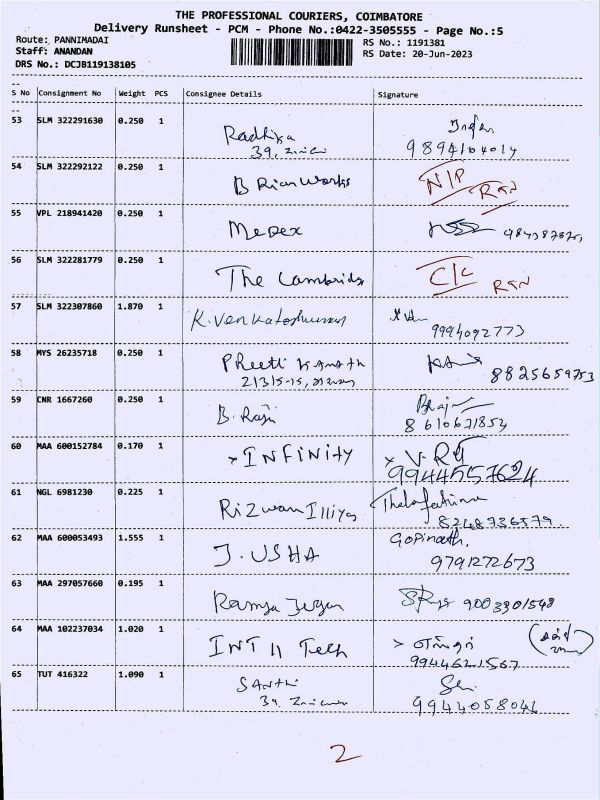 THE PROFESSIONAL COURIERS, COIMBATORE
Delivery Runsheet - PCM - Phone No.:0422-3505555 - Page No.:5
Route: PANNIMADAI
RS No.: 1191381
Staff: ANANDAN
RS Date: 20-Jun-2023
DRS No.: DCJB119138105
S No Consignment No Weight PCS Consignee Details Signature
53 SLM 322291630 0.250 1 Radhika
39,
9894104014
54 SLM 322292122 0.250 1 B Rian Works N/P RTN
55 VPL 218941420 0.250 1 Medex
56 SLM 322281779 0.250 1 The Cambridg C/C RTN
57 SLM 322307860 1.870 1 K. Venkatoshwaran
9994092773
58 MYS 26235718 0.250 1 Preeti Kamath
21315-15,
8825659753
59 CNR 1667260 0.250 1 B. Raji
8610671853
60 MAA 600152784 0.170 1 INFINITY
9944557624
61 NGL 6981230 0.225 1 Rizwan Illiyas
8248736579
62 MAA 600053493 1.555 1 J. USHA Gopinath,
9791272673
63 MAA 297057660 0.195 1 Ramya 9003301548
64 MAA 102237034 1.020 1 INT II Tech
9944621567
65 TUT 416322 1.090 1 Santhi
39,
9944058041
2